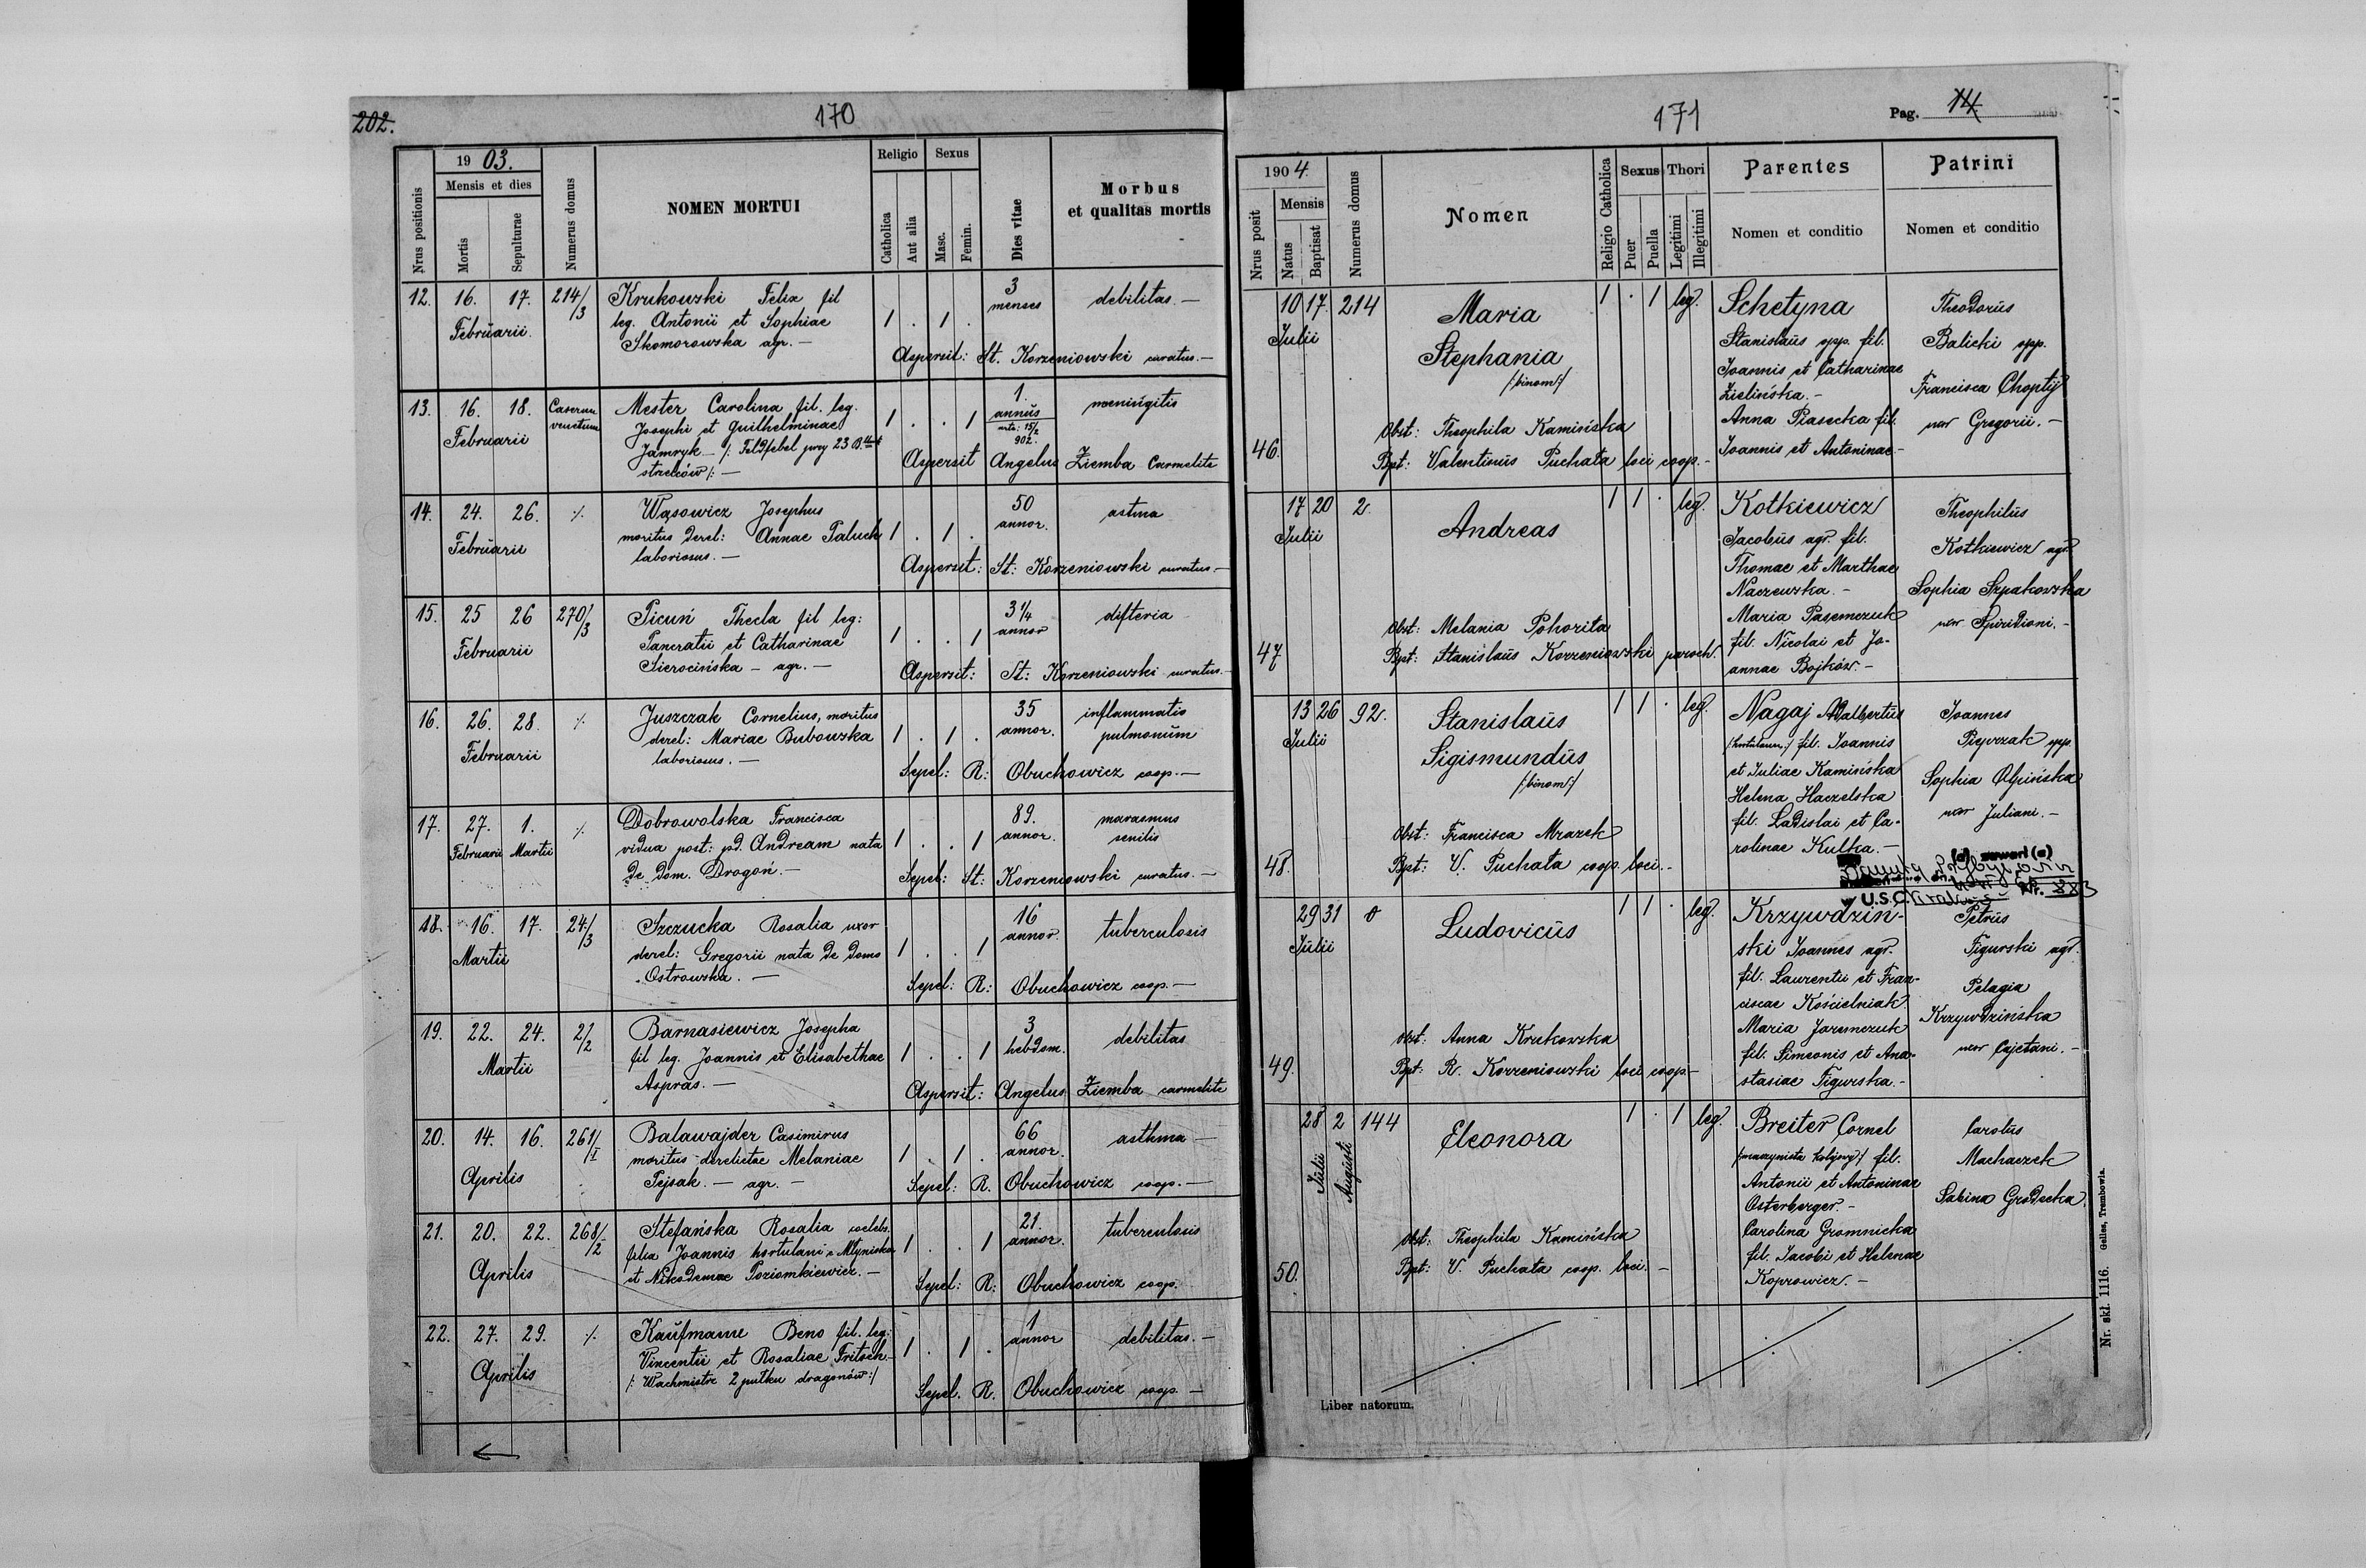 202.
170
19 03.
Mensis et dies
Nrus positionis
Mortis
Sepulturae
Numerus domus
NOMEN MORTUI
Religio
Sexus
Catholica
Aut alia
Masc.
Femin.
Dies vitae
Morbus
et qualitas mortis
12. 16. 17. 214/3 Krukowski Felix fil
leg. Antonii et Sophiae
Skomorowska agr. —
Februarii.
1 . 1 .
3
menses
debilitas. —
Aspersit: St. Korzeniowski curatus. —
13. 16. 18. Mester Carolina fil. leg.
Josephi et Guilhelminae
Jamryk — /: Feldfebel przy 23 B.
strzelców :/ —
Februarii
1 . . 1
1.
annus
15/2
902.
meningitis
Aspersit Angelus Ziemba Carmelita
14. 24. 26. ./. Wąsowicz Josephus
maritus derel: Annae Paluch
laboriosus. —
Februarii
1 . 1 .
50
annor.
astma
Aspersit: St: Korzeniowski curatus —
15. 25 26 270/3 Picuń Thecla fil leg:
Pancratii et Catharinae
Sierocińska — agr. —
Februarii
1 . . 1
3 1/4
annor
difteria
Aspersit: St: Korzeniowski curatus.
16. 26. 28. ./. Juszczak Cornelius, maritus
derel: Mariae Bubowska
laboriosus. —
Februarii
1 . 1 .
35
annor.
inflammatio
pulmonum
Sepel: R: Obuchowicz coop. —
17. 27. 1. ./. Dobrowolska Francisca
vidua post: pd. Andream nata
de dom. Drogoń. —
Februarii Martii
1 . . 1
89.
annor.
marasmus
senilis
Sepel: St: Korzeniowski curatus. —
18. 16. 17. 24/3 Szczucka Rosalia uxor
derel: Gregorii nata de domo
Ostrowska. —
Martii
1 . . 1
16
annor.
tuberculosis
Sepel: R: Obuchowicz coop. —
19. 22. 24. 2/2 Barnasiewicz Josepha
fil leg. Joannis et Elisabethae
Aspras. —
Martii
1 . . 1
3
hebdom.
debilitas
Aspersit: Angelus Ziemba carmelita
20. 14. 16. 261/I Balawajder Casimirus
maritus derelictae Melaniae
Pejsak. — agr. —
Aprilis
1 . 1 .
66
annor.
asthma —
Sepel: R. Obuchowicz coop. —
21. 20. 22. 268/2 Stefańska Rosalia coelebs.
filia Joannis hortulani z Młyniska
et Nikodemae Poziomkiewicz. —
Aprilis
1 . . 1
21.
annor.
tuberculosis
Sepel: R: Obuchowicz coop.
22. 27. 29. ./. Kaufmann Beno fil. leg.
Vincentii et Rosaliae Fritsch —
/: Wachmistrz 2 pułku dragonów :/
Aprilis
1 . 1 .
1
annor
debilitas. —
Sepel. R. Obuchowicz coop. —
171
Pag. 14
1904
Nrus posit
Mensis
Natus
Baptisat
Numerus domus
Nomen
Religio Catholica
Sexus
Puer
Puella
Thori
Legitimi
Illegitimi
Parentes
Nomen et conditio
Patrini
Nomen et conditio
46. 10 17. 214
Julii
Maria
Stephania
/:binom:/
1 . 1 leg.
Obst: Theophila Kamińska
Bpt: Valentinus Puchała loci coop. —
Schetyna
Stanislaus opp. fil.
Joannis et Catharinae
Zielińska. —
Anna Piasecka fil.
Joannis et Antoninae —
Theodorus
Balicki opp.
Francisca Choptij
uxor Gregorii. —
47 17 20 2.
Julii
Andreas
1 1 . leg.
Obst: Melania Pohorita
Bpt: Stanislaus Korzeniowski paroch.
Kotkiewicz
Jacobus agr. fil.
Thomae et Marthae
Naczewska. —
Maria Pasemczuk
fil. Nicolai et Jo-
annae Bojków. —
Theophilus
Kotkiewicz agr.
Sophia Szpakowska
uxor Spiridioni. —
48. 13 26 92.
Julii
Stanislaus
Sigismundus
/:binom:/
1 1 . leg.
Obst: Francisca Mrazek
Bpt: V. Puchała coop. loci. —
Nagaj Adalbertus
/:hortulanus:/ fil. Joannis
et Juliae Kamińska
Helena Haczelska
fil. Ladislai et Ca-
rolinae Kulka. —
Joannes
Pieprzak opp.
Sophia Olpińska
uxor Juliani. —
(d) zawarł (a)
U.S.C. Kraków Nr. 883
49. 29 31 0
Julii
Ludovicus
1 1 . leg.
Obst: Anna Krukowska
Bpt: R. Korzeniowski loci coop —
Krzywdziń-
ski Joannes agr.
fil. Laurentii et Fran-
ciscae Kościelniak.
Maria Jaremczuk
fil. Simeonis et Ana-
stasiae Figurska. —
Petrus
Figurski agr.
Pelagia
Krzywdzińska
uxor Cajetani. —
50. 28 2 144
Julii
Augusti
Eleonora
1 . 1 leg.
Obst: Theophila Kamińska
Bpt: V. Puchała coop. loci. —
Breiter Cornel
/:maszynista kolejowy:/ fil.
Antonii et Antoninae
Osterberger. —
Carolina Gromnicka
fil. Jacobi et Helenae
Koprowicz. —
Carolus
Machaczek
Sabina Grodecka.
Liber natorum.
Nr. skł. 1116. Gelles, Trembowla.